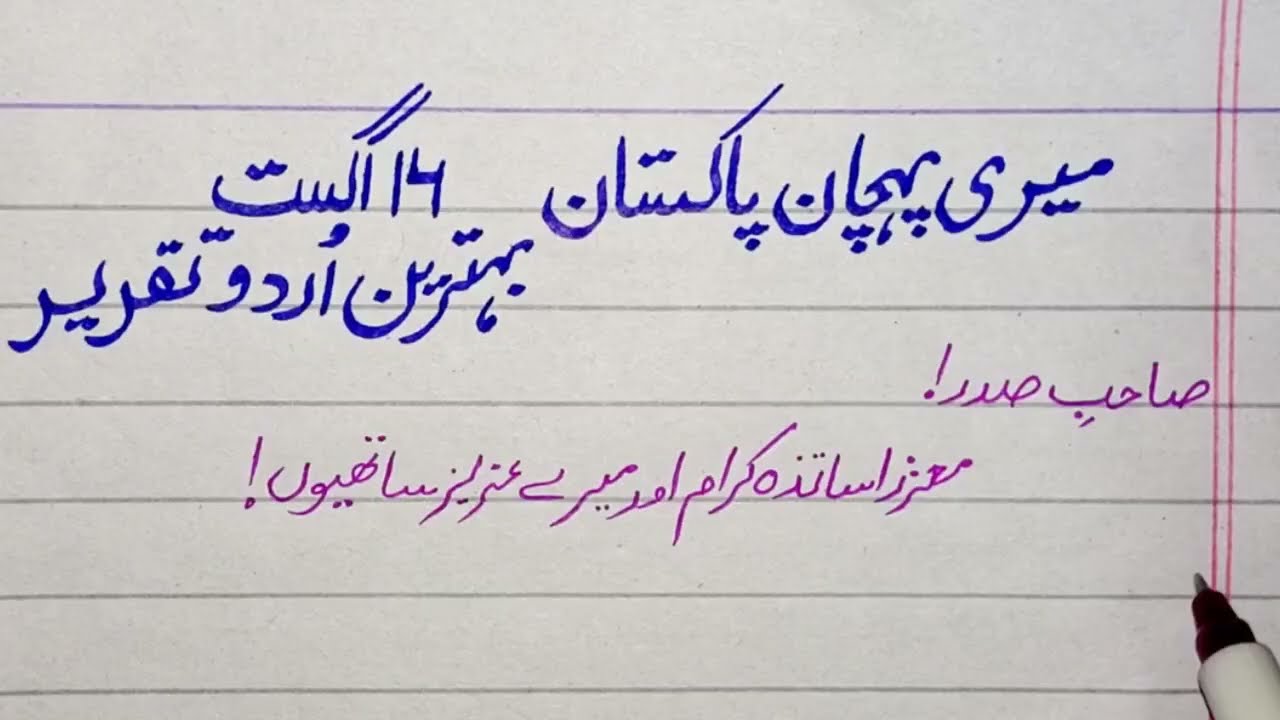 میری پہچان پاکستان ۱۴ اگست
بہترین اُردو تقریر
صاحبِ صدر!
معزز اساتذہ کرام اور میرے عزیز ساتھیوں!